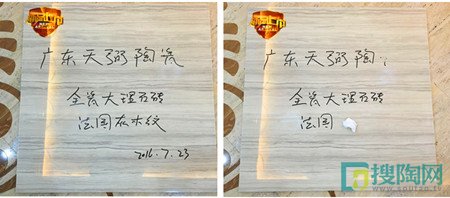 广东天弼陶瓷
全瓷大理石砖
法国灰木纹
2016.7.23
广东天弼陶
全瓷大理石砖
法国
搜陶网
www.soutao.tv